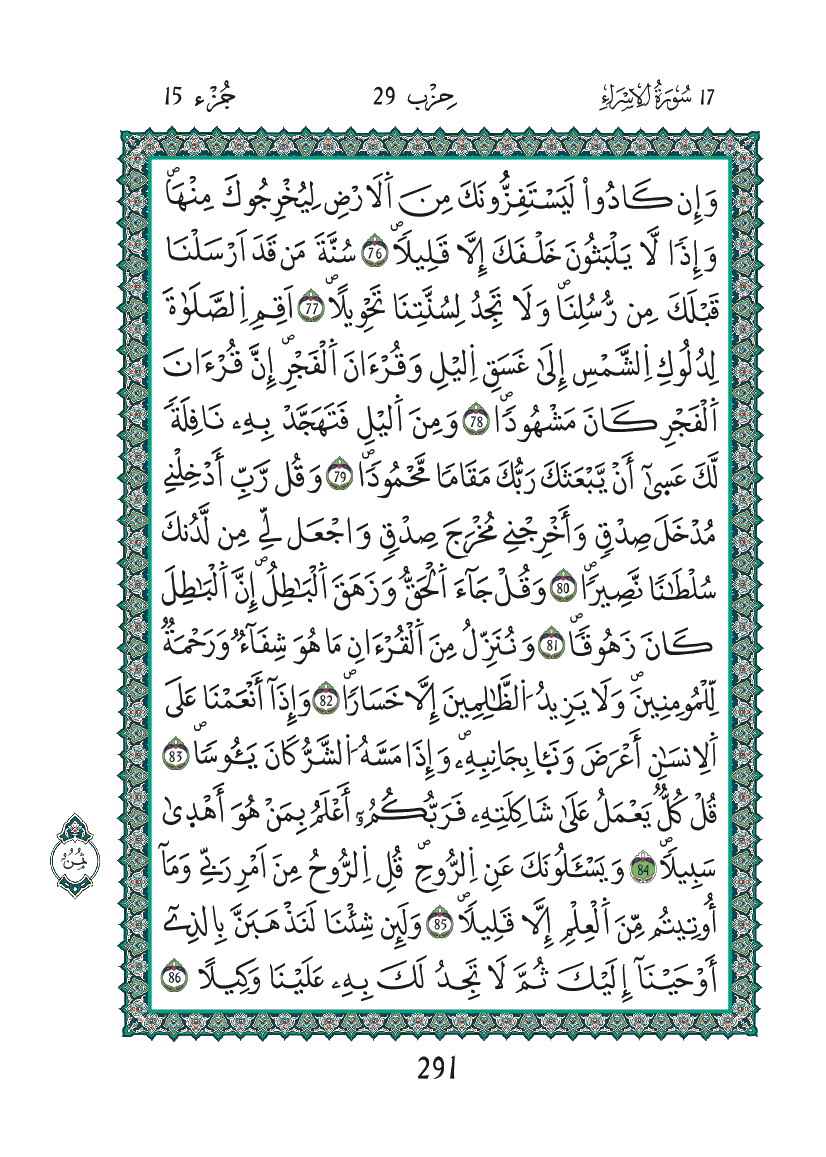 17 سُورَةُ الإِسْرَاءِ حِزْب 29 جُزْء 15
وَإِن كَادُواْ لَيَسْتَفِزُّونَكَ مِنَ اَ۬لَارْضِ لِيُخْرِجُوكَ مِنْهَاۖ
وَإِذاٗ لَّا يَلْبَثُونَ خَلْفَكَ إِلَّا قَلِيلاٗۖ 76 سُنَّةَ مَن قَدَ اَرْسَلْنَا
قَبْلَكَ مِن رُّسُلِنَاۖ وَلَا تَجِدُ لِسُنَّتِنَا تَحْوِيلاًۖ 77 اَقِمِ اِ۬لصَّلَوٰةَ
لِدُلُوكِ اِ۬لشَّمْسِ إِلَىٰ غَسَقِ اِ۬ليْلِ وَقُرْءَانَ اَ۬لْفَجْرِۖ إِنَّ قُرْءَانَ
اَ۬لْفَجْرِ كَانَ مَشْهُوداٗۖ 78 وَمِنَ اَ۬ليْلِ فَتَهَجَّدْ بِهِۦ نَافِلَةٗ
لَّكَ عَسىٰٓ أَنْ يَّبْعَثَكَ رَبُّكَ مَقَاماٗ مَّحْمُوداٗۖ 79 وَقُل رَّبِّ أَدْخِلْنِے
مُدْخَلَ صِدْقٖ وَأَخْرِجْنِے مُخْرَجَ صِدْقٖ وَاجْعَل لِّے مِن لَّدُنكَ
سُلْطَٰناٗ نَّصِيراٗۖ 80 وَقُلْ جَآءَ اَ۬لْحَقُّ وَزَهَقَ اَ۬لْبَٰطِلُۖ إِنَّ اَ۬لْبَٰطِلَ
كَانَ زَهُوقاٗۖ 81 وَنُنَزِّلُ مِنَ اَ۬لْقُرْءَانِ مَا هُوَ شِفَآءٞ وَرَحْمَةٞ
لِّلْمُومِنِينَۖ وَلَا يَزِيدُ اُ۬لظَّٰلِمِينَ إِلَّا خَسَاراٗۖ 82 وَإِذَآ أَنْعَمْنَا عَلَى
اَ۬لِانسَٰنِ أَعْرَضَ وَنَـَٔا بِجَانِبِهِۦۖ وَإِذَا مَسَّهُ اُ۬لشَّرُّ كَانَ يَـُٔوساٗۖ 83
قُلْ كُلّٞ يَعْمَلُ عَلَىٰ شَاكِلَتِهِۦ فَرَبُّكُمُۥٓ أَعْلَمُ بِمَنْ هُوَ أَهْدىٰ
سَبِيلاٗۖ 84 وَيَسْـَٔلُونَكَ عَنِ اِ۬لرُّوحِۖ قُلِ اِ۬لرُّوحُ مِنَ اَمْرِ رَبِّے وَمَآ
أُوتِيتُم مِّنَ اَ۬لْعِلْمِ إِلَّا قَلِيلاٗۖ 85 وَلَئِن شِئْنَا لَنَذْهَبَنَّ بِالذِےٓ
أَوْحَيْنَآ إِلَيْكَ ثُمَّ لَا تَجِدُ لَكَ بِهِۦ عَلَيْنَا وَكِيلاً 86
ثُمُن
291